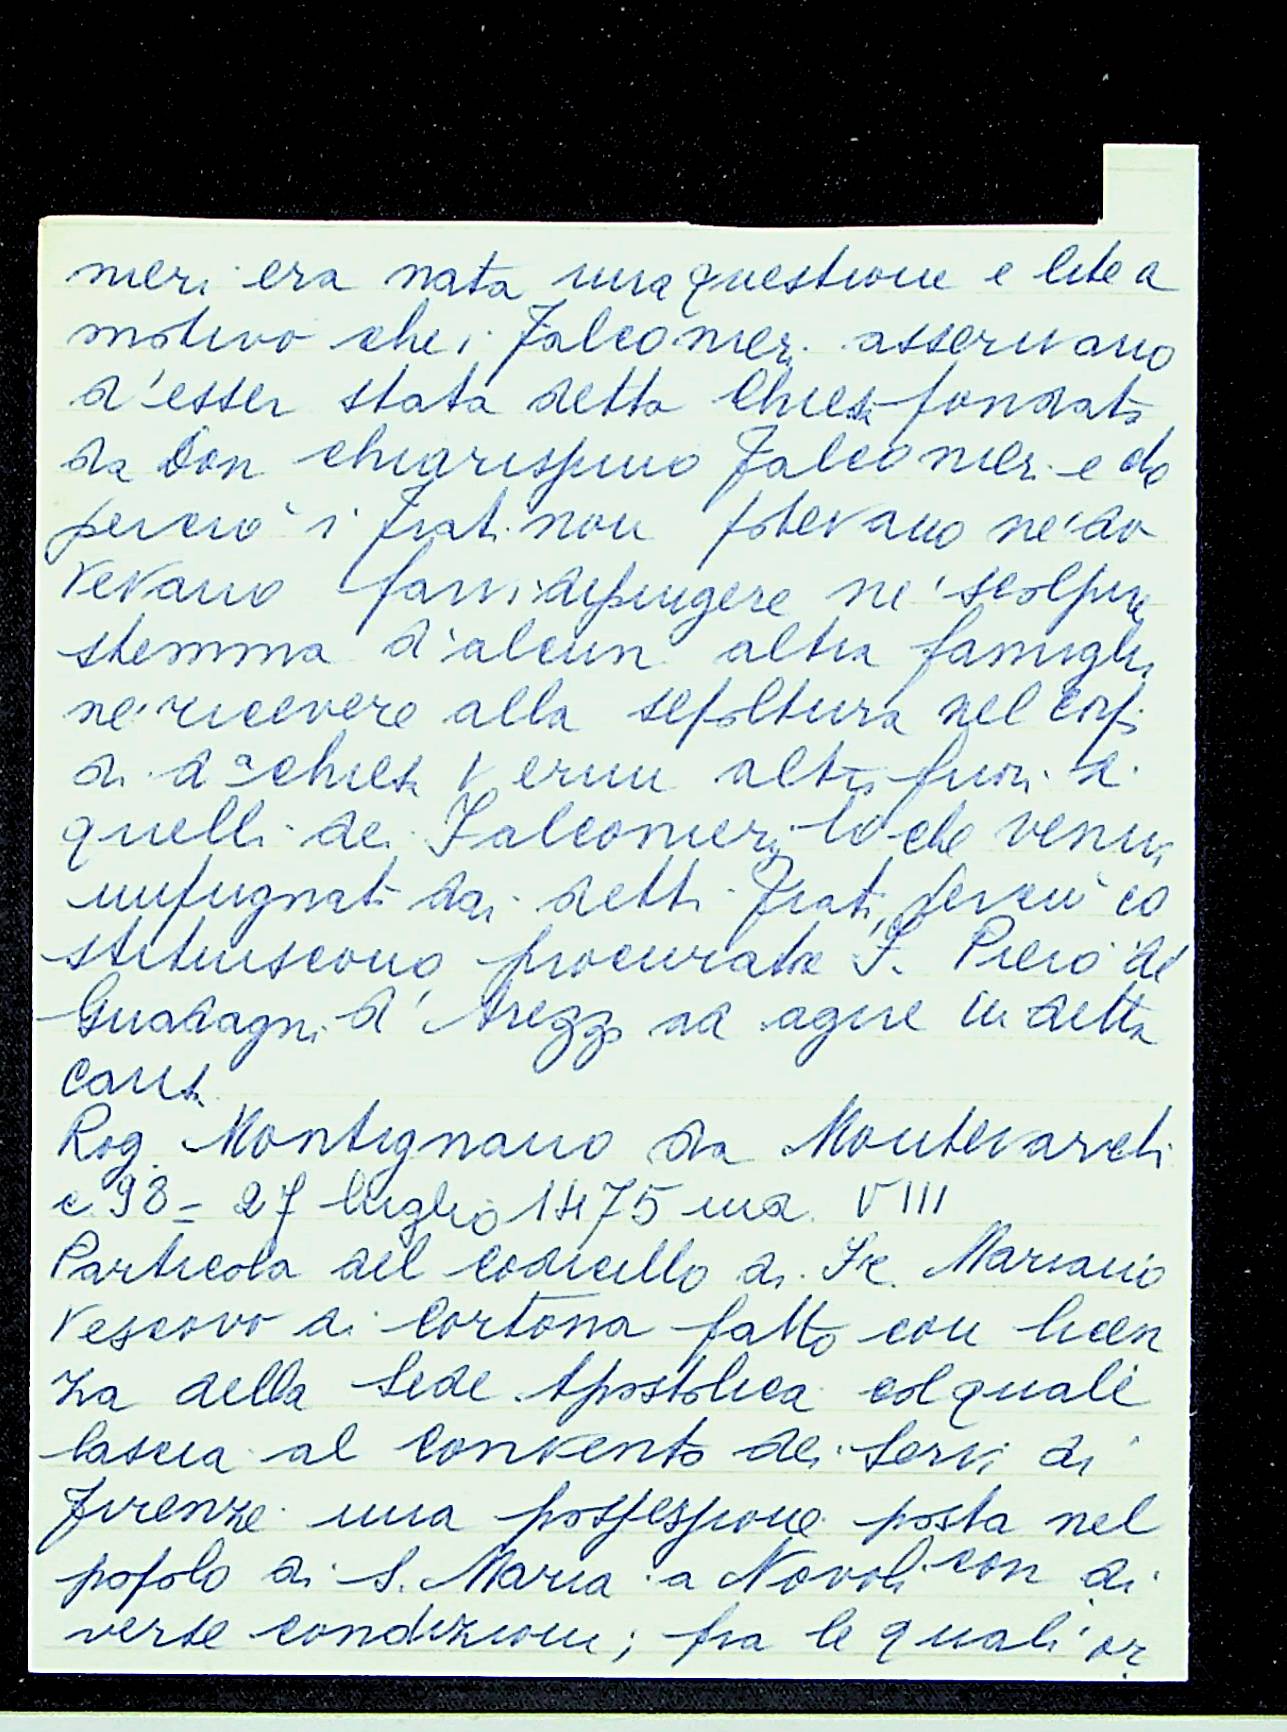 nieri era nata una questione e lite a
motivo che i Falconieri asserivano
d'esser stata detta Chiesa fondata
da Don chiarissimo Falconieri e che
perciò i Frati non potevano nè do
vevano farvi dipingere nè scolpire
stemma d'alcun altra famiglia
nè ricevere alla sepoltura nel corpo
di d.a chiesa verun altro fuori di
quelli dei Falconieri lo che veniva
impugnato dai detti Frati, perciò co
stituiscono procuratore S. Piero de
Guadagni d'Arezzo ad agire in detta
causa
Rog. Montignano da Montevarchi
c. 98 = 27 luglio 1475 ind. VIII
Particola del codicillo di Fr. Mariano
Vescovo di Cortona fatto con licen
za della Sede Apostolica col quale
lascia al Convento dei Servi di
Firenze una possessione posta nel
popolo di S. Maria a Novoli con di
verse condizioni; fra le quali or